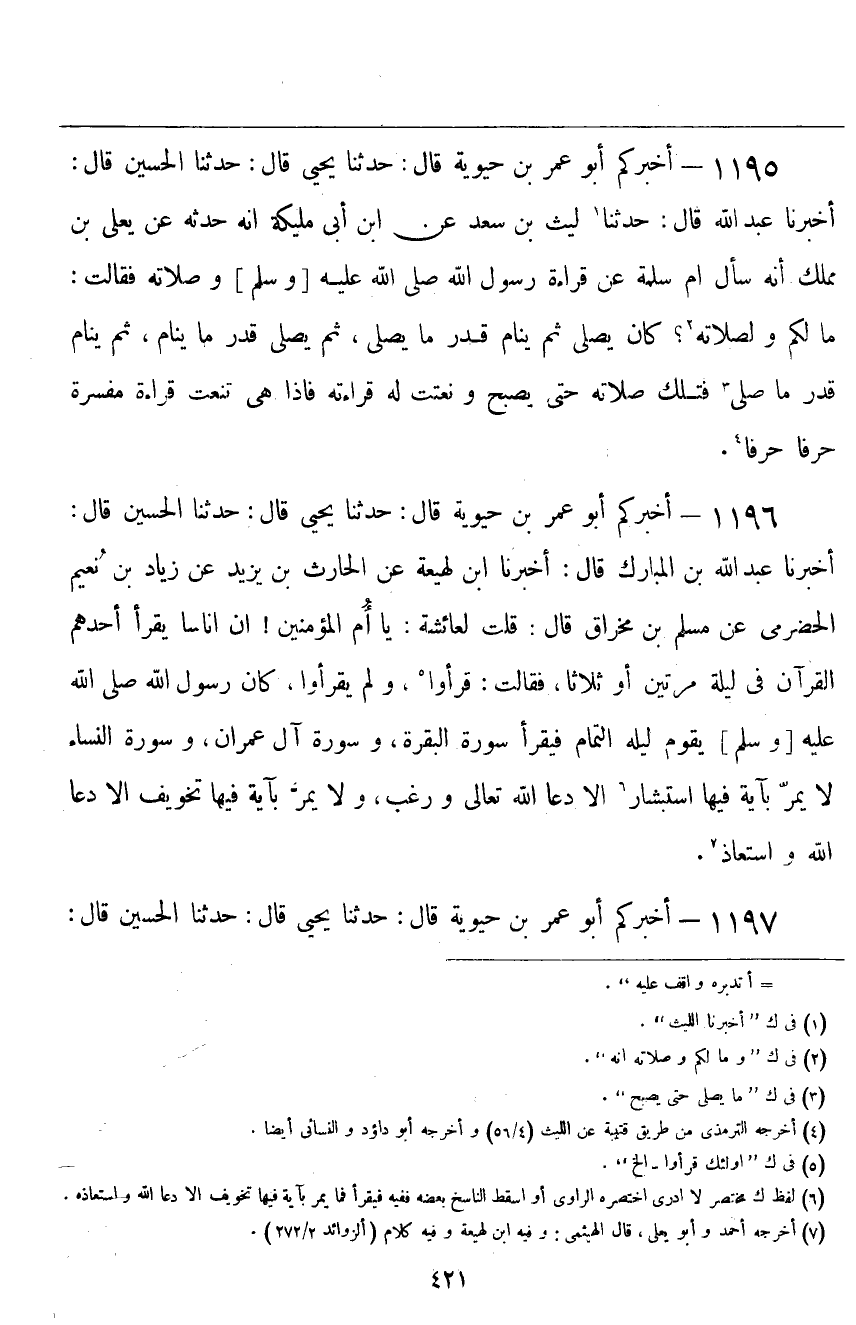 ١١٩٥ – أخبركم أبو عمر بن حيوية قال: حدثنا يحيي قال: حدثنا الحسين قال:
أخبرنا عبد الله قال: حدثنا١ ليث بن سعد عن ابن أبى مليكة انه حدثه عن يعلى بن
مملك أنه سأل ام سلمة عن قراءة رسول الله صلى الله عليه [و سلم] و صلاته فقالت:
ما لكم و لصلاته٢؟ كان يصلى ثم ينام قدر ما يصلى، ثم يصلى قدر ما ينام، ثم ينام
قدر ما صلى٣ فتلك صلاته حتى يصبح و نعتت له قراءته فاذا هى تنعت قراءة مفسرة
حرفا حرفا٤.
١١٩٦ – أخبركم أبو عمر بن حيوية قال: حدثنا يحيي قال: حدثنا الحسين قال:
أخبرنا عبد الله بن المبارك قال: أخبرنا ابن لهيعة عن الحارث بن يزيد عن زياد بن نُعيم
الحضرمى عن مسلم بن مخراق قال: قلت لعائشة: يا أُم المؤمنين! ان اناسا يقرأ أحدهم
القرآن فى ليلة مرتين أو ثلاثا، فقالت: قرأوا٥، و لم يقرأوا، كان رسول الله صلى الله
عليه [و سلم] يقوم ليله التمام فيقرأ سورة البقرة، و سورة آل عمران، و سورة النساء
لا يمرّ بآية فيها استبشار٦ الا دعا الله تعالى و رغب، و لا يمرّ بآية فيها تخويف الا دعا
الله و استعاذ٧.
١١٩٧ – أخبركم أبو عمر بن حيوية قال: حدثنا يحيي قال: حدثنا الحسين قال:
= أ تدبره و اقف عليه ".
(١) فى ك "أخبرنا الليث".
(٢) فى ك "و ما لكم و صلاته انه".
(٣) فى ك "ما يصلى حتى يصبح".
(٤) أخرجه الترمذى من طريق قتيبة عن الليث (٥٦/٤) و أخرجه أبو داؤد و النسائى أيضا.
(٥) فى ك "اولئك قرأوا ـ الخ".
(٦) لفظ ك مختصر لا ادرى اختصره الراوى أو اسقط الناسخ بعضه ففيه فيقرأ فما يمر بآية فيها تخويف الا دعا الله و استعاذه.
(٧) أخرجه أحمد و أبو يعلى، قال الهيثمى: و فيه ابن لهيعة و فيه كلام (الزوائد ٢٧٢/٢).
٤٢١